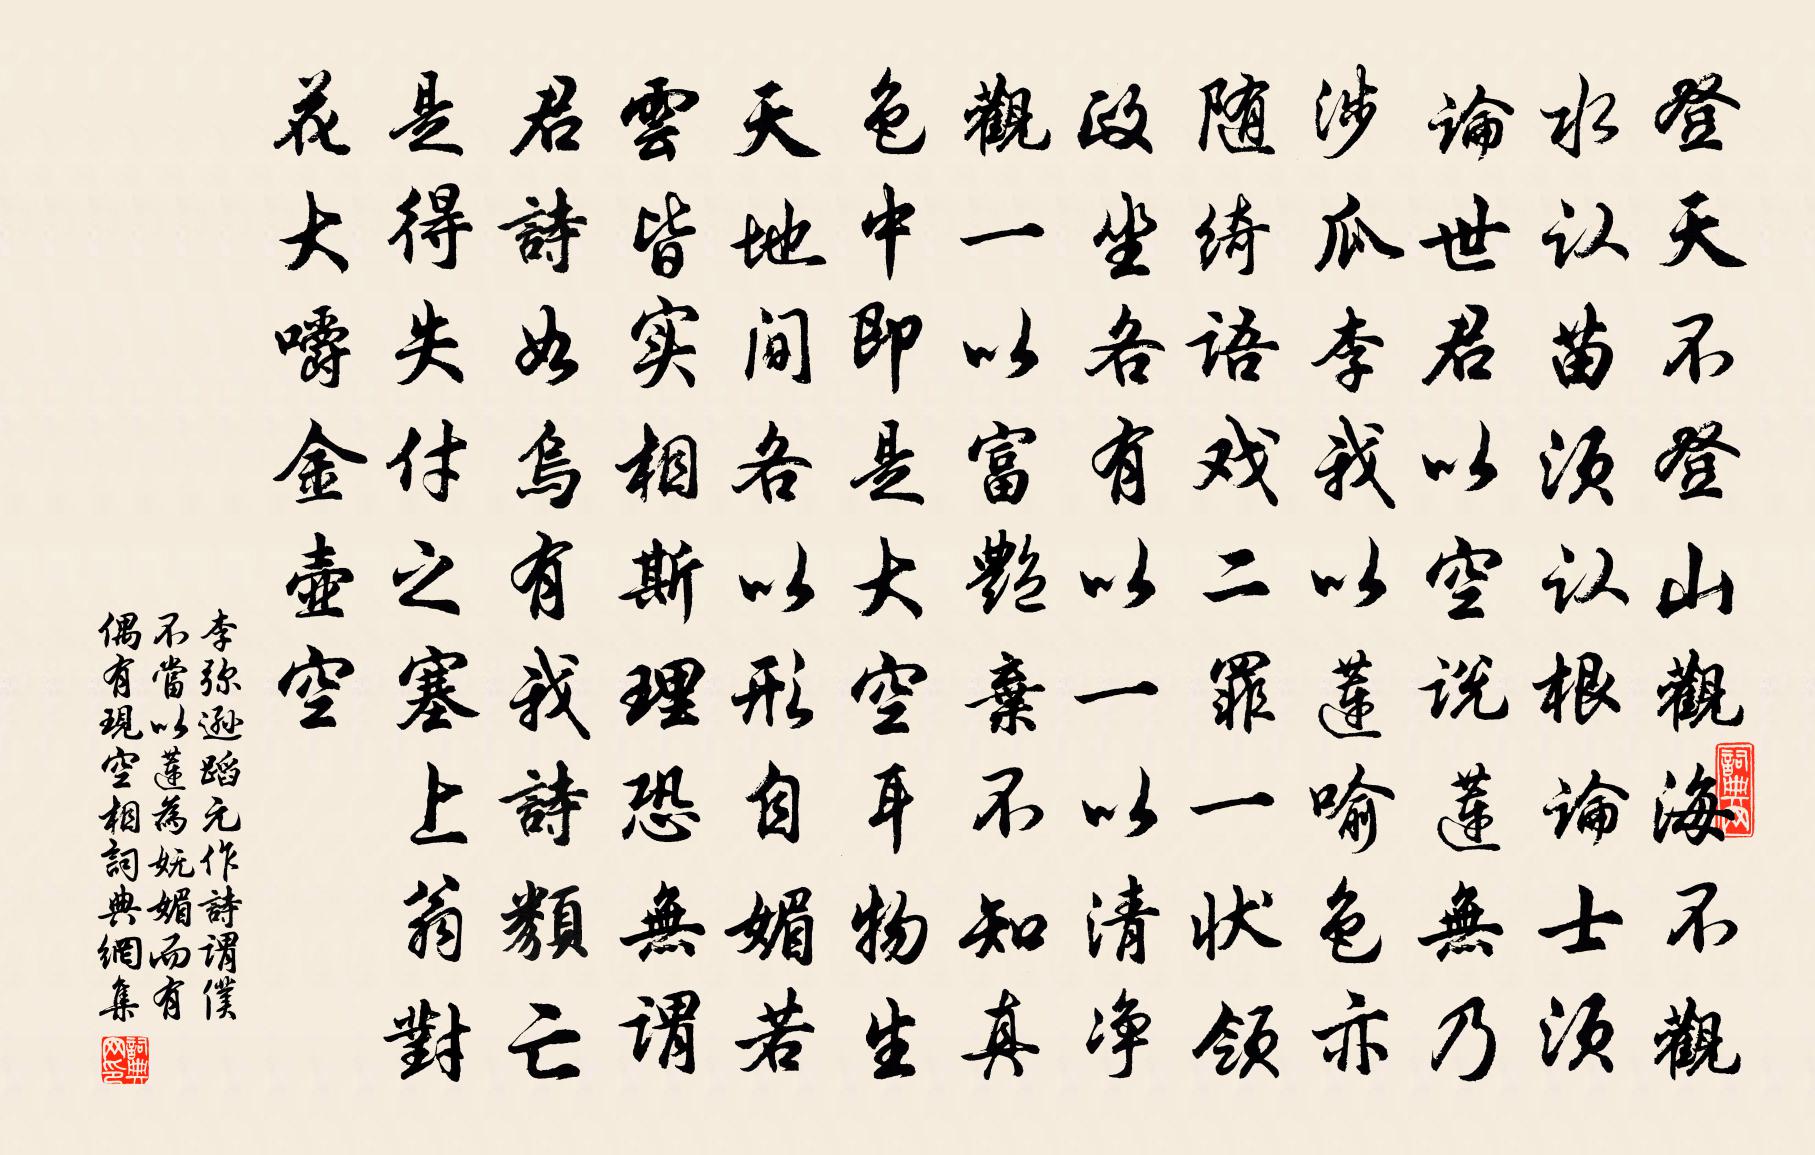 登天不登山觀海不觀
水认苗须认根論士须
論世君以空说蓮無乃
涉瓜李我以蓮喻色亦
随绮语戏二罪一状领
政坐各有以一以清净
觀一以富艷棄不知真
色中即是大空耳物生
天地间各以形自媚若
雲皆实相斯理恐無谓
君詩如烏有我詩類亡
是得失付之塞上翁對
花大嚼金壺空
李弥逊蹈元作詩谓僕
不當以蓮為妩媚而有
偶有現空相詞典網集
詞典